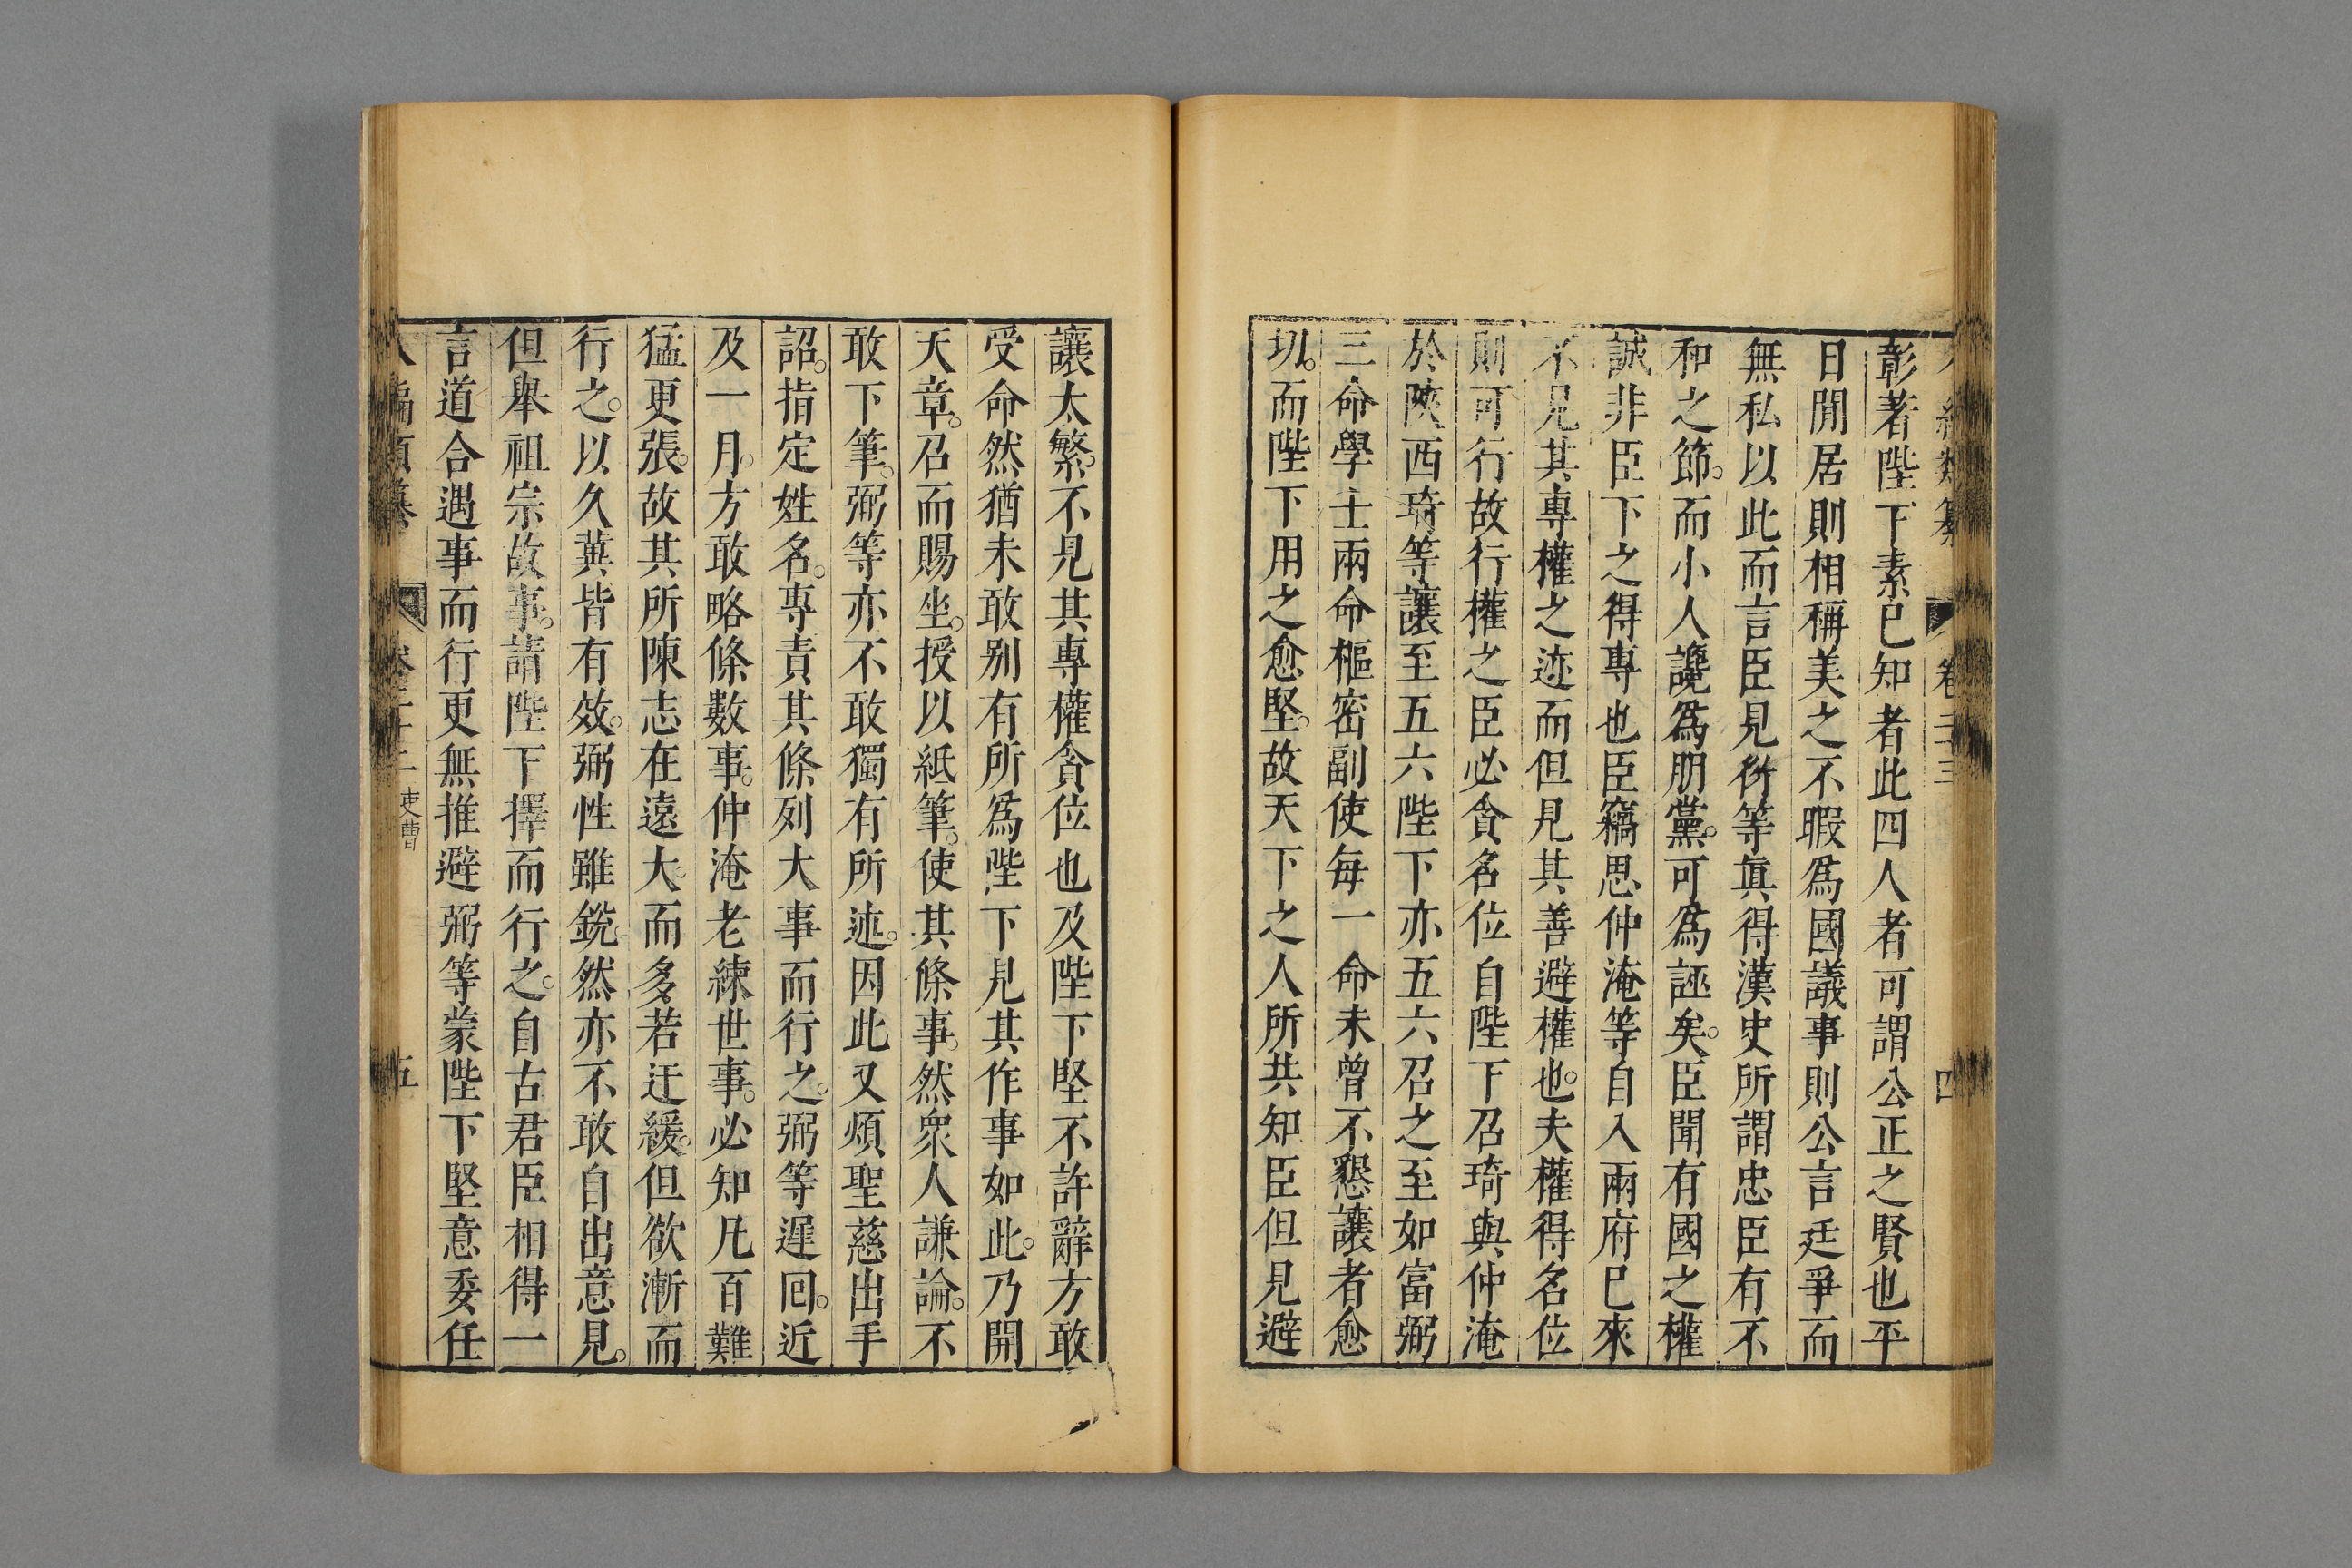 彰著陛下素已知者此四人者可謂公正之賢也平
日閒居則相稱美之不暇爲國議事則公言廷爭而
無私以此而言臣見衍等眞得漢史所謂忠臣有不
和之節。而小人讒爲朋黨。可爲誣矣。臣聞有國之權
誠非臣下之得專也臣竊思仲淹等自入兩府已來
不見其專權之迹而但見其善避權也。夫權得名位
則可行故行權之臣必貪名位自陛下召琦與仲淹
於陝西琦等讓至五六陛下亦五六召之至如富弼
三命學士兩命樞密副使每一命未曾不懇讓者愈
切。而陛下用之愈堅。故天下之人所共知臣但見避
讓太繁。不見其專權貪位也及陛下堅不許辭方敢
受命然猶未敢別有所爲陛下見其作事如此。乃開
天章。召而賜坐。授以紙筆。使其條事。然衆人謙論。不
敢下筆。弼等亦不敢獨有所述。因此又煩聖慈出手
詔。指定姓名。專責其條列大事而行之。弼等遲回。近
及一月。方敢略條數事。仲淹老練世事。必知凡百難
猛更張。故其所陳志在遠大。而多若迂緩。但欲漸而
行之。以久冀皆有效。弼性雖銳。然亦不敢自出意見。
但舉祖宗故事。請陛下擇而行之。自古君臣相得一
言道合遇事而行更無推避弼等蒙陛下堅意委任
吏曹
五